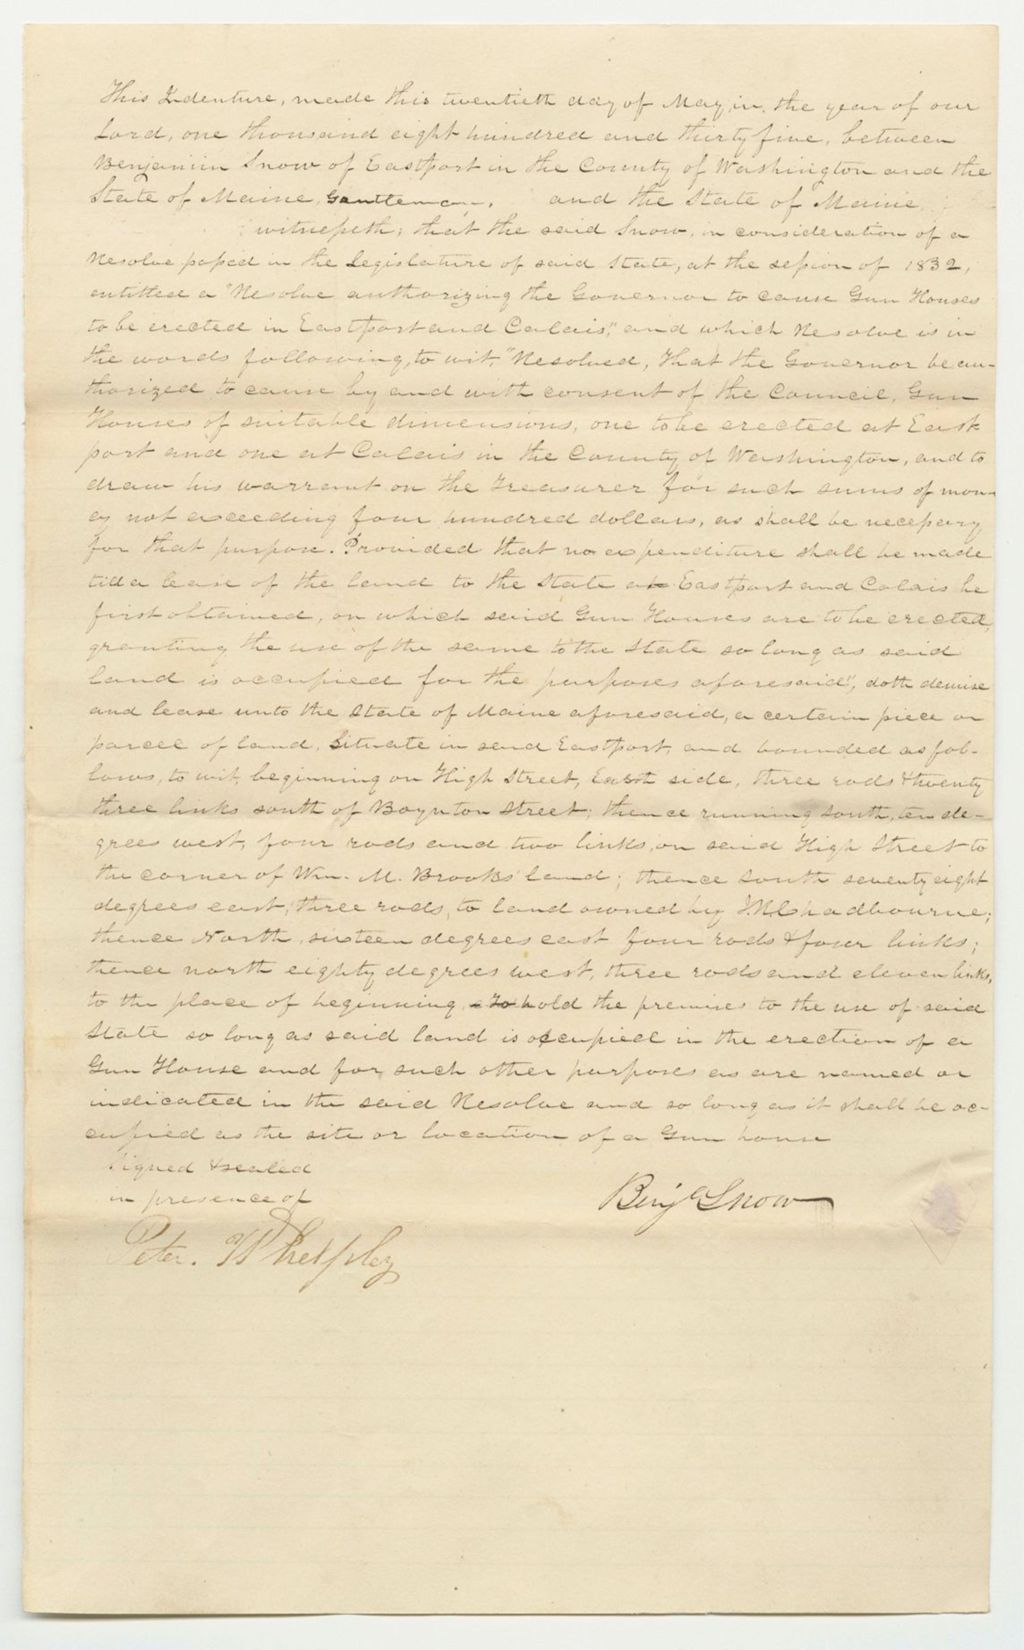 This Indenture, made this twentieth day of May, in the year of our
Lord, one thousand eight hundred and thirty five, between
Benjamin Snow of Eastport in the County of Washington and the
State of Maine, Gentleman, and the State of Maine,
witnesseth; that the said Snow, in consideration of a
Resolve passed in the Legislature of said State, at the session of 1832,
entitled a "Resolve authorizing the Governor to cause Gun Houses
to be erected in Eastport and Calais," and which Resolve is in
the words following, to wit, "Resolved, That the Governor be au-
thorized to cause by and with consent of the Council, Gun
Houses of suitable dimensions, one to be erected at East
port and one at Calais in the County of Washington, and to
draw his warrant on the Treasurer for such sums of mon-
ey not exceeding four hundred dollars, as shall be necessary
for that purpose. Provided that no expenditure shall be made
till a lease of the land to the State at Eastport and Calais be
first obtained, on which said Gun Houses are to be erected,
granting the use of the same to the State so long as said
land is occupied for the purposes aforesaid", doth demise
and lease unto the State of Maine aforesaid, a certain piece or
parcel of land, Situate in said Eastport, and bounded as fol-
lows, to wit, beginning on High Street, East side, three rods & twenty
three links south of Boynton Street; thence running south, ten de-
grees west, four rods and two links, on said High Street to
the corner of Wm. M. Brooks' land; thence South seventy eight
degrees east, three rods, to land owned by Chadbourne;
thence North, sixteen degrees east four rods & four links;
thence north eighty degrees west, three rods and eleven links,
to the place of beginning - To hold the premises to the use of said
State so long as said land is occupied in the erection of a
Gun House and for such other purposes as are named or
indicated in the said Resolve and so long as it shall be oc-
cupied as the site or location of a Gun house
Signed & sealed
in presence of
Benja Snow
Peter. Whelpley